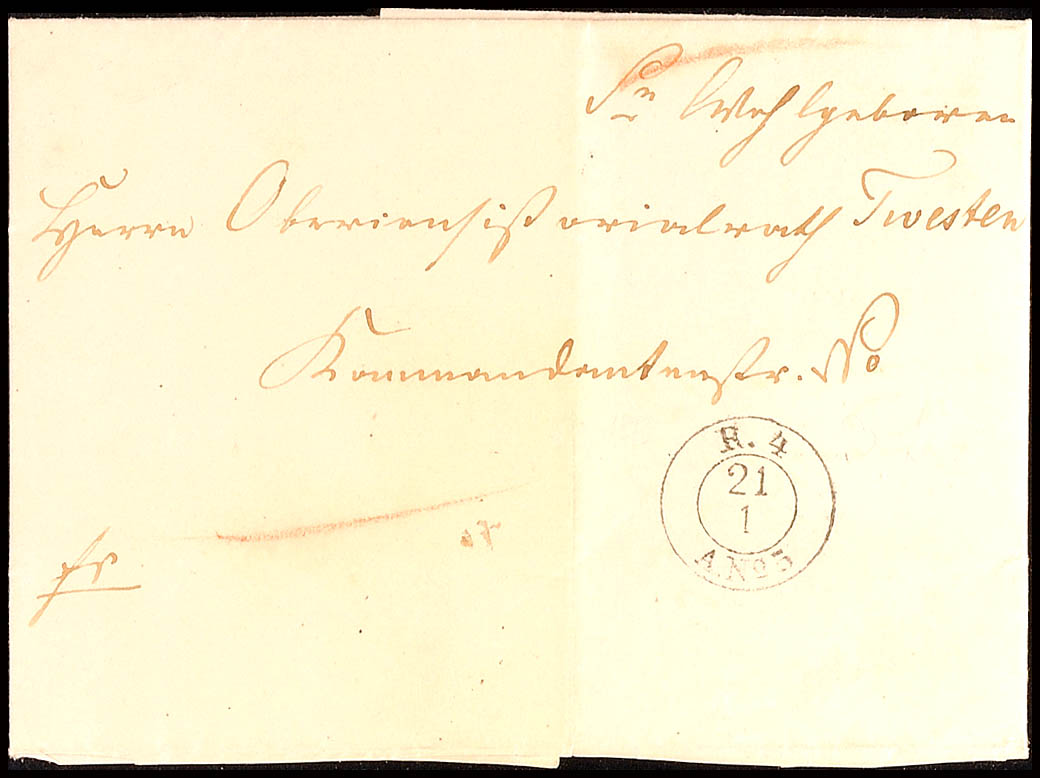 Sr Wohlgeboren
Herrn Oberconsistorialrath Twesten
Kommandantenstr. No
R. 4
21
1
A. No 3
fr